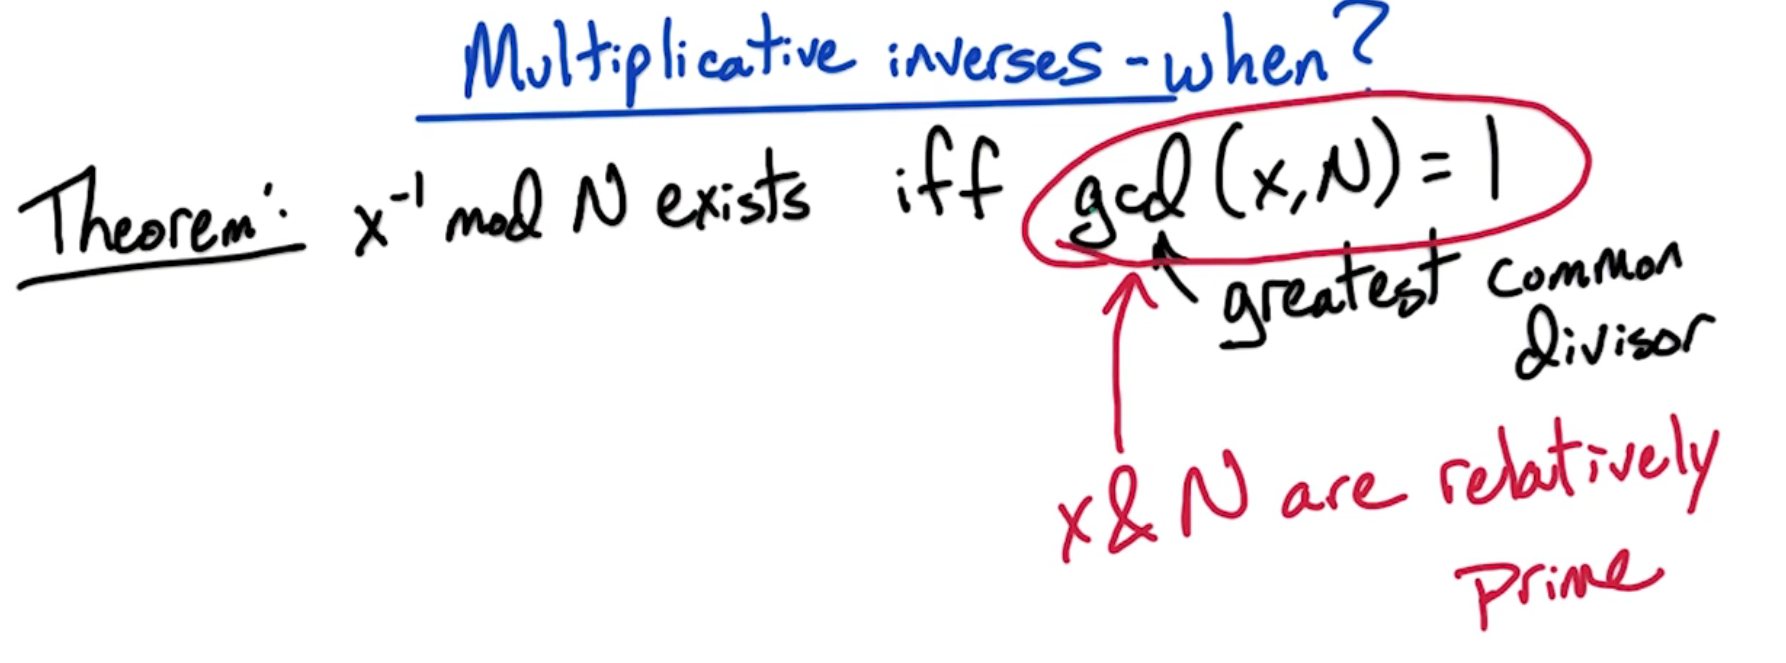 Multiplicative inverses - when?
Theorem: x⁻¹ mod N exists iff gcd (x,N) = 1
greatest common
divisor
x & N are relatively
prime